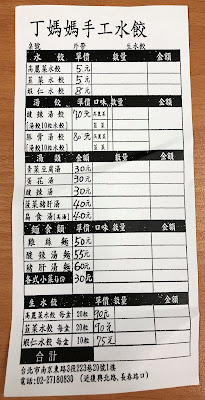 丁媽媽手工水餃
桌號 外帶 生水餃
水餃 單價 數量 金額
高麗菜水餃 5元
韭菜水餃 5元
蝦仁水餃 8元
湯餃 單價 口味 數量 金額
酸辣湯餃 70元 高麗菜
(湯餃10粒水餃) 韭菜
酸骨湯餃 80元 高麗菜
(湯餃10粒水餃) 韭菜
湯類 單價 數量 金額
青菜豆腐湯 30元
蛋花湯 30元
酸辣湯 30元
菠菜豬肝湯 40元
烏食湯(高湯) 40元
麵食類 單價 口味 數量 金額
雞絲麵 50元
酸辣湯麵 55元
豬肝湯麵 60元
各式小菜每份 30元
生水餃 單價 數量 金額
高麗菜水餃 每盒 20粒 90元
韭菜水餃 每盒 20粒 90元
蝦仁水餃 每盒 10粒 75元
合計
台北市南京東路3段223巷20號1樓
電話:02-27180830 (近復興北路,長春路口)